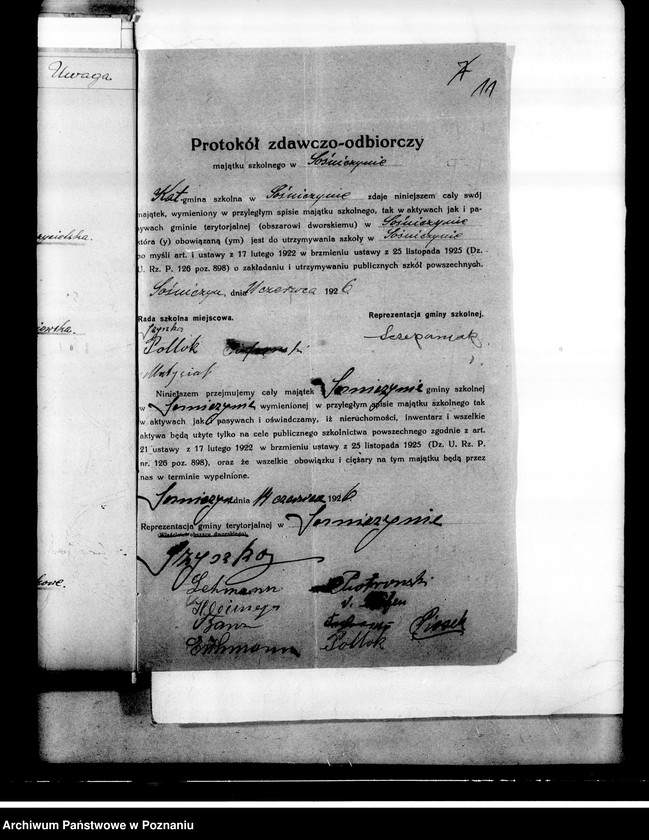 Uwaga.
11
Protokół zdawczo-odbiorczy
majątku szkolnego w Sośniczynie
Kat. gmina szkolna w Sośniczynie zdaje niniejszem cały swój
majątek, wymieniony w przyległym spisie majątku szkolnego, tak w aktywach jak i pa-
ywach gminie terytorjalnej (obszarowi dworskiemu) w Sośniczynie
która (y) obowiązaną (ym) jest do utrzymywania szkoły w Sośniczynie
po myśli art. i ustawy z 17 lutego 1922 w brzmieniu ustawy z 25 listopada 1925 (Dz.
U. Rz. P. 126 poz. 898) o zakładaniu i utrzymywaniu publicznych szkół powszechnych.
Sośniczyn, dnia 11 czerwca 1926
Rada szkolna miejscowa.
Reprezentacja gminy szkolnej.
Szyszka
Pollok
Szczepaniak
Matysiak
Niniejszem przejmujemy cały majątek Sosniczynie gminy szkolnej
w Sosniczynie wymienionej w przyległym spisie majątku szkolnego tak
w aktywach jak pasywach i oświadczamy, iż nieruchomości, inwentarz i wszelkie
aktywa będą użyte tylko na cele publicznego szkolnictwa powszechnego zgodnie z art.
21 ustawy z 17 lutego 1922 w brzmieniu ustawy z 25 listopada 1925 (Dz. U. Rz. P.
nr. 126 poz. 898), oraz że wszelkie obowiązku i ciężary na tym majątku będą przez
nas w terminie wypełnione.
Sosniczyn dnia 11 czerwca 1926
Reprezentacja gminy terytorjalnej w Sosniczynie
(Właściciel obszaru dworskiego)
Szyszka
Lehmann Piotrowski
v.
Pollok
Archiwum Państwowe w Poznaniu